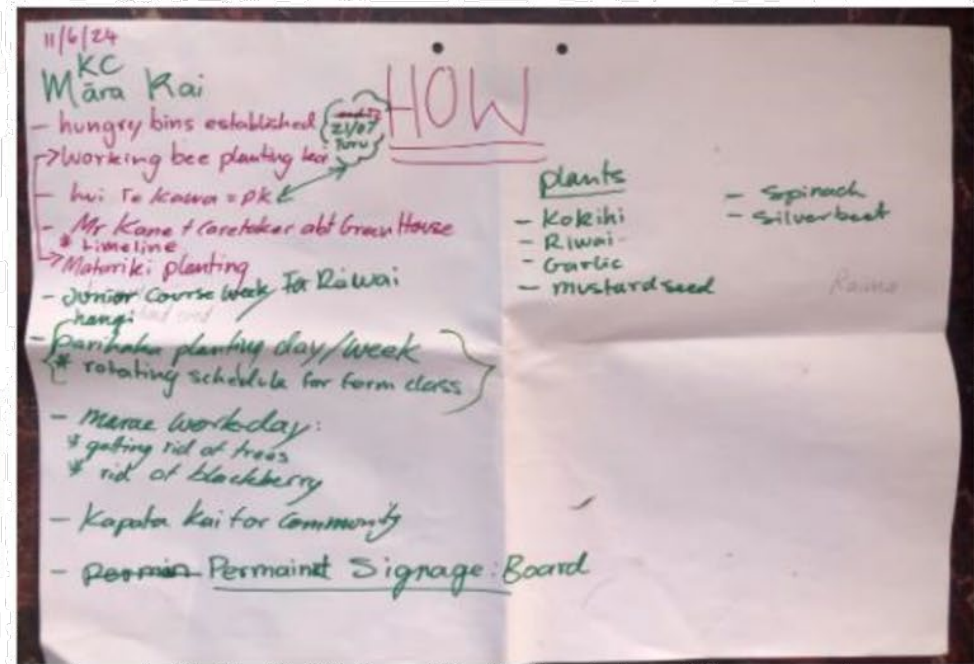 11/6/24
KC
Māra Kai
HOW
- hungry bins established
21/07
→ Working bee planting kai
- hui Te Kawa = PK
- Mr Kane + caretaker abt Green House
* timeline
→ Matariki planting
- Junior Course Week for Rāwai
hangi
- parihaka planting day/week
* rotating schedule for form class
- Marae workday:
* getting rid of trees
* rid of blackberry
- Kapata Kai for Community
- Permaint Signage: Board
plants
- Kokihi
- Riwai
- Garlic
- mustard seed
- Spinach
- silverbeet